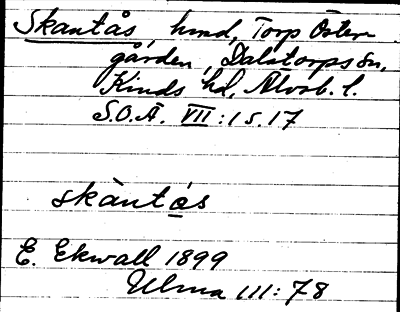 Skantås, hmd, Torp Öster-
gården, Dalstorps sn,
Kinds hd, Älvsb. l.
S.O.Ä. VII:15.17
skàntås
E. Ekwall 1899
Ulma 111:78